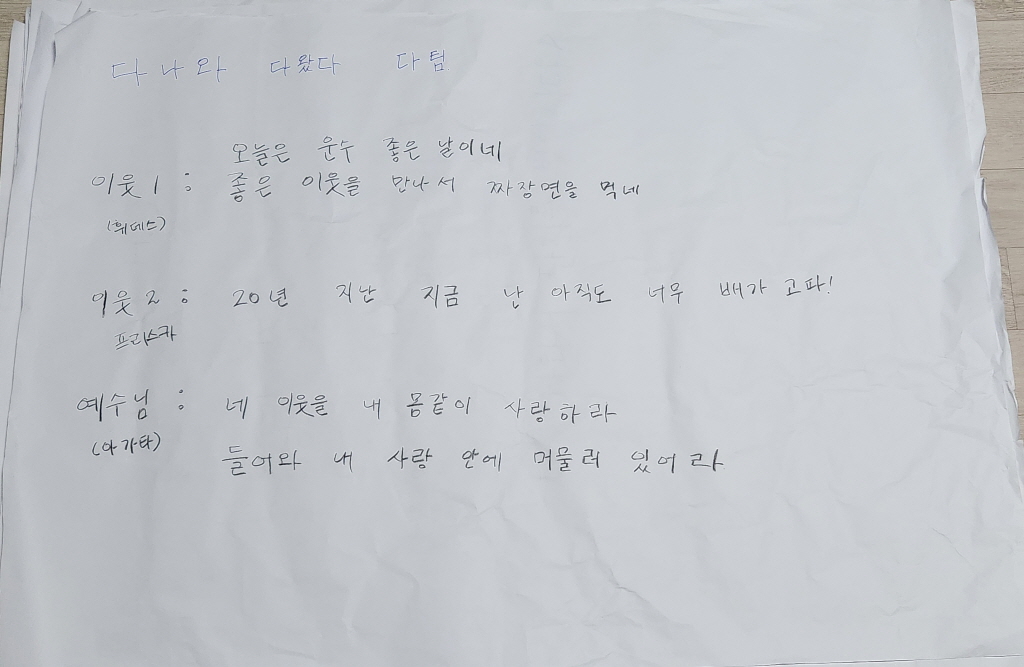 다 나 와 다왔다 다팀
오늘은 운수 좋은 날이네
이웃1 : 좋은 이웃을 만나서 짜장면을 먹네
(휘데스)
이웃2 : 20년 지난 지금 난 아직도 너무 배가 고파!
프리스카
예수님 : 네 이웃을 내 몸같이 사랑하라
(아가타)
들어와 내 사랑 안에 머물러 있어라